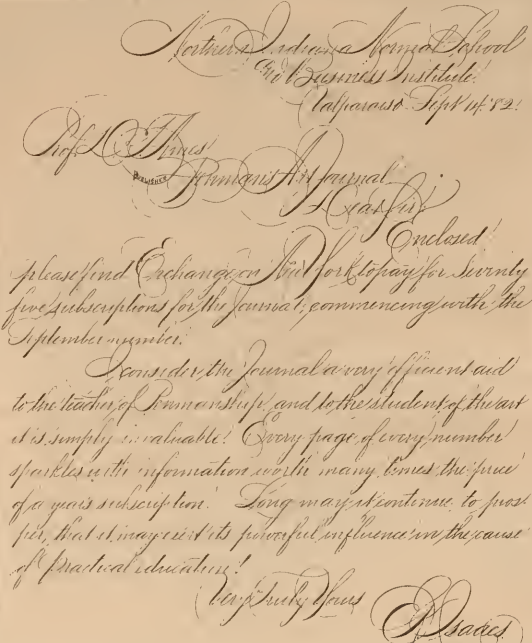 Northern Indiana Normal School
and Business Institute.
Valparaiso Sept 14 '82.
Prof. D. T. Ames
PUBLISHER Penman's Art Journal
Dear Sir
Enclosed
please find Exchange on New York to pay for Seventy
five subscriptions for the Journal; commencing with the
September number.
I consider the Journal a very efficient aid
to the teacher of Penmanship and to the student of the art
it is simply invaluable! Every page of every number
sparkles with information worth many times the price
of a years subscription. Long may it continue to pros-
per, that it may exert its powerful influence in the cause
of practical education!
Very Truly Yours
Isaacs